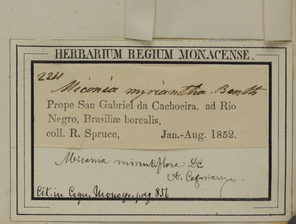 HERBARIUM REGIUM MONACENSE.
2241 Miconia myriantha Benth
Prope San Gabriel da Cachoeira, ad Rio
Negro, Brasiliæ borealis,
coll. R. Spruce, Jan.-Aug. 1852.
Miconia minutiflora DC
Cit. in Cogn. Monogr. pag 836